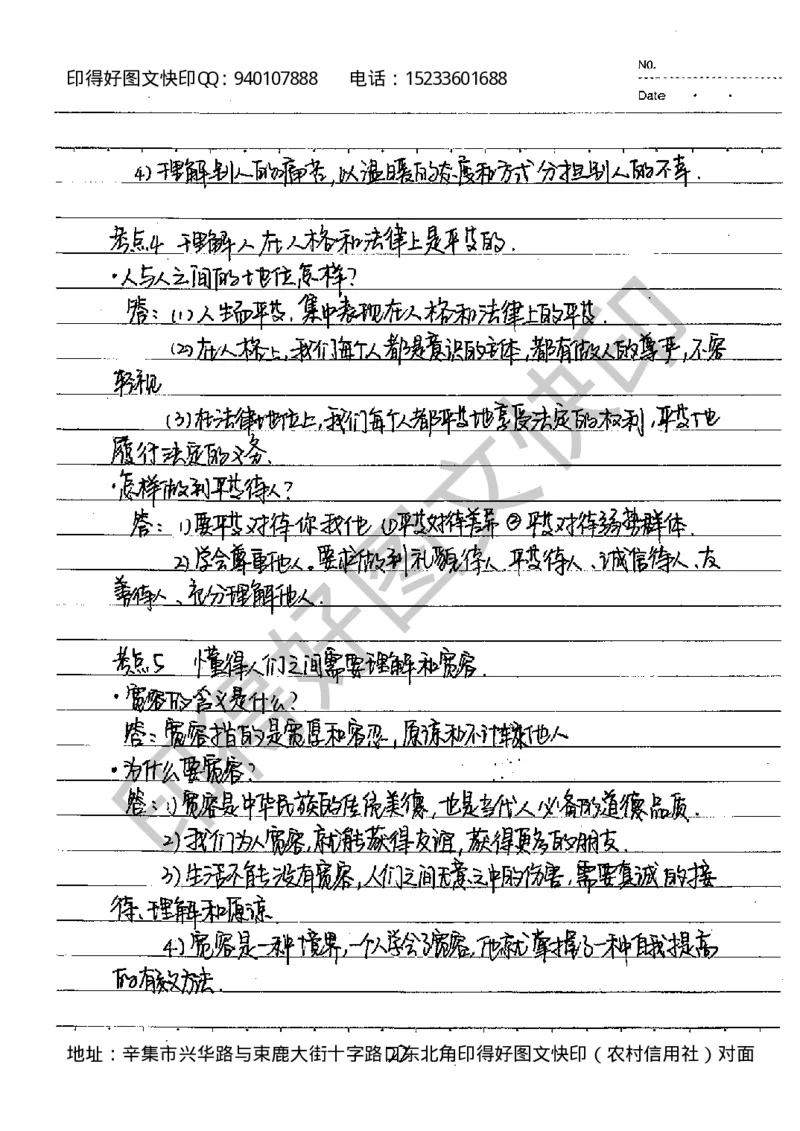 印得好图文快印QQ：940107888 电话：15233601688
No.
Date
4)理解别人的痛苦，以温暖的态度和方式分担别人的不幸．
考点4 理解人在人格和法律上是平等的．
·人与人之间的地位怎样？
答：(1)人生而平等，集中表现在人格和法律上的平等．
(2)在人格上，我们每个人都是意识的主体，都有做人的尊严，不容
轻视
(3)在法律地位上，我们每个人都平等地享受法定的权利，平等地
履行法定的义务．
·怎样做到平等待人？
答：1)要平等对待你我他 ①平等对待差异 ②平等对待弱势群体．
2)学会尊重他人。要求做到礼貌待人、平等待人、诚信待人、友
善待人、充分理解他人．
考点5 懂得人们之间需要理解和宽容．
·宽容的含义是什么？
答：宽容指的是宽厚和容忍，原谅和不计较他人
·为什么要宽容？
答：1)宽容是中华民族的传统美德，也是当代人必备的道德品质．
2)我们为人宽容，就能获得友谊，获得更多的朋友．
3)生活不能没有宽容，人们之间无意之中的伤害，需要真诚的接
待、理解和原谅．
4)宽容是一种境界，一个人学会了宽容，他就掌握了一种自我提高
的有效方法．
地址：辛集市兴华路与束鹿大街十字路口东北角印得好图文快印（农村信用社）对面
印得好图文快印